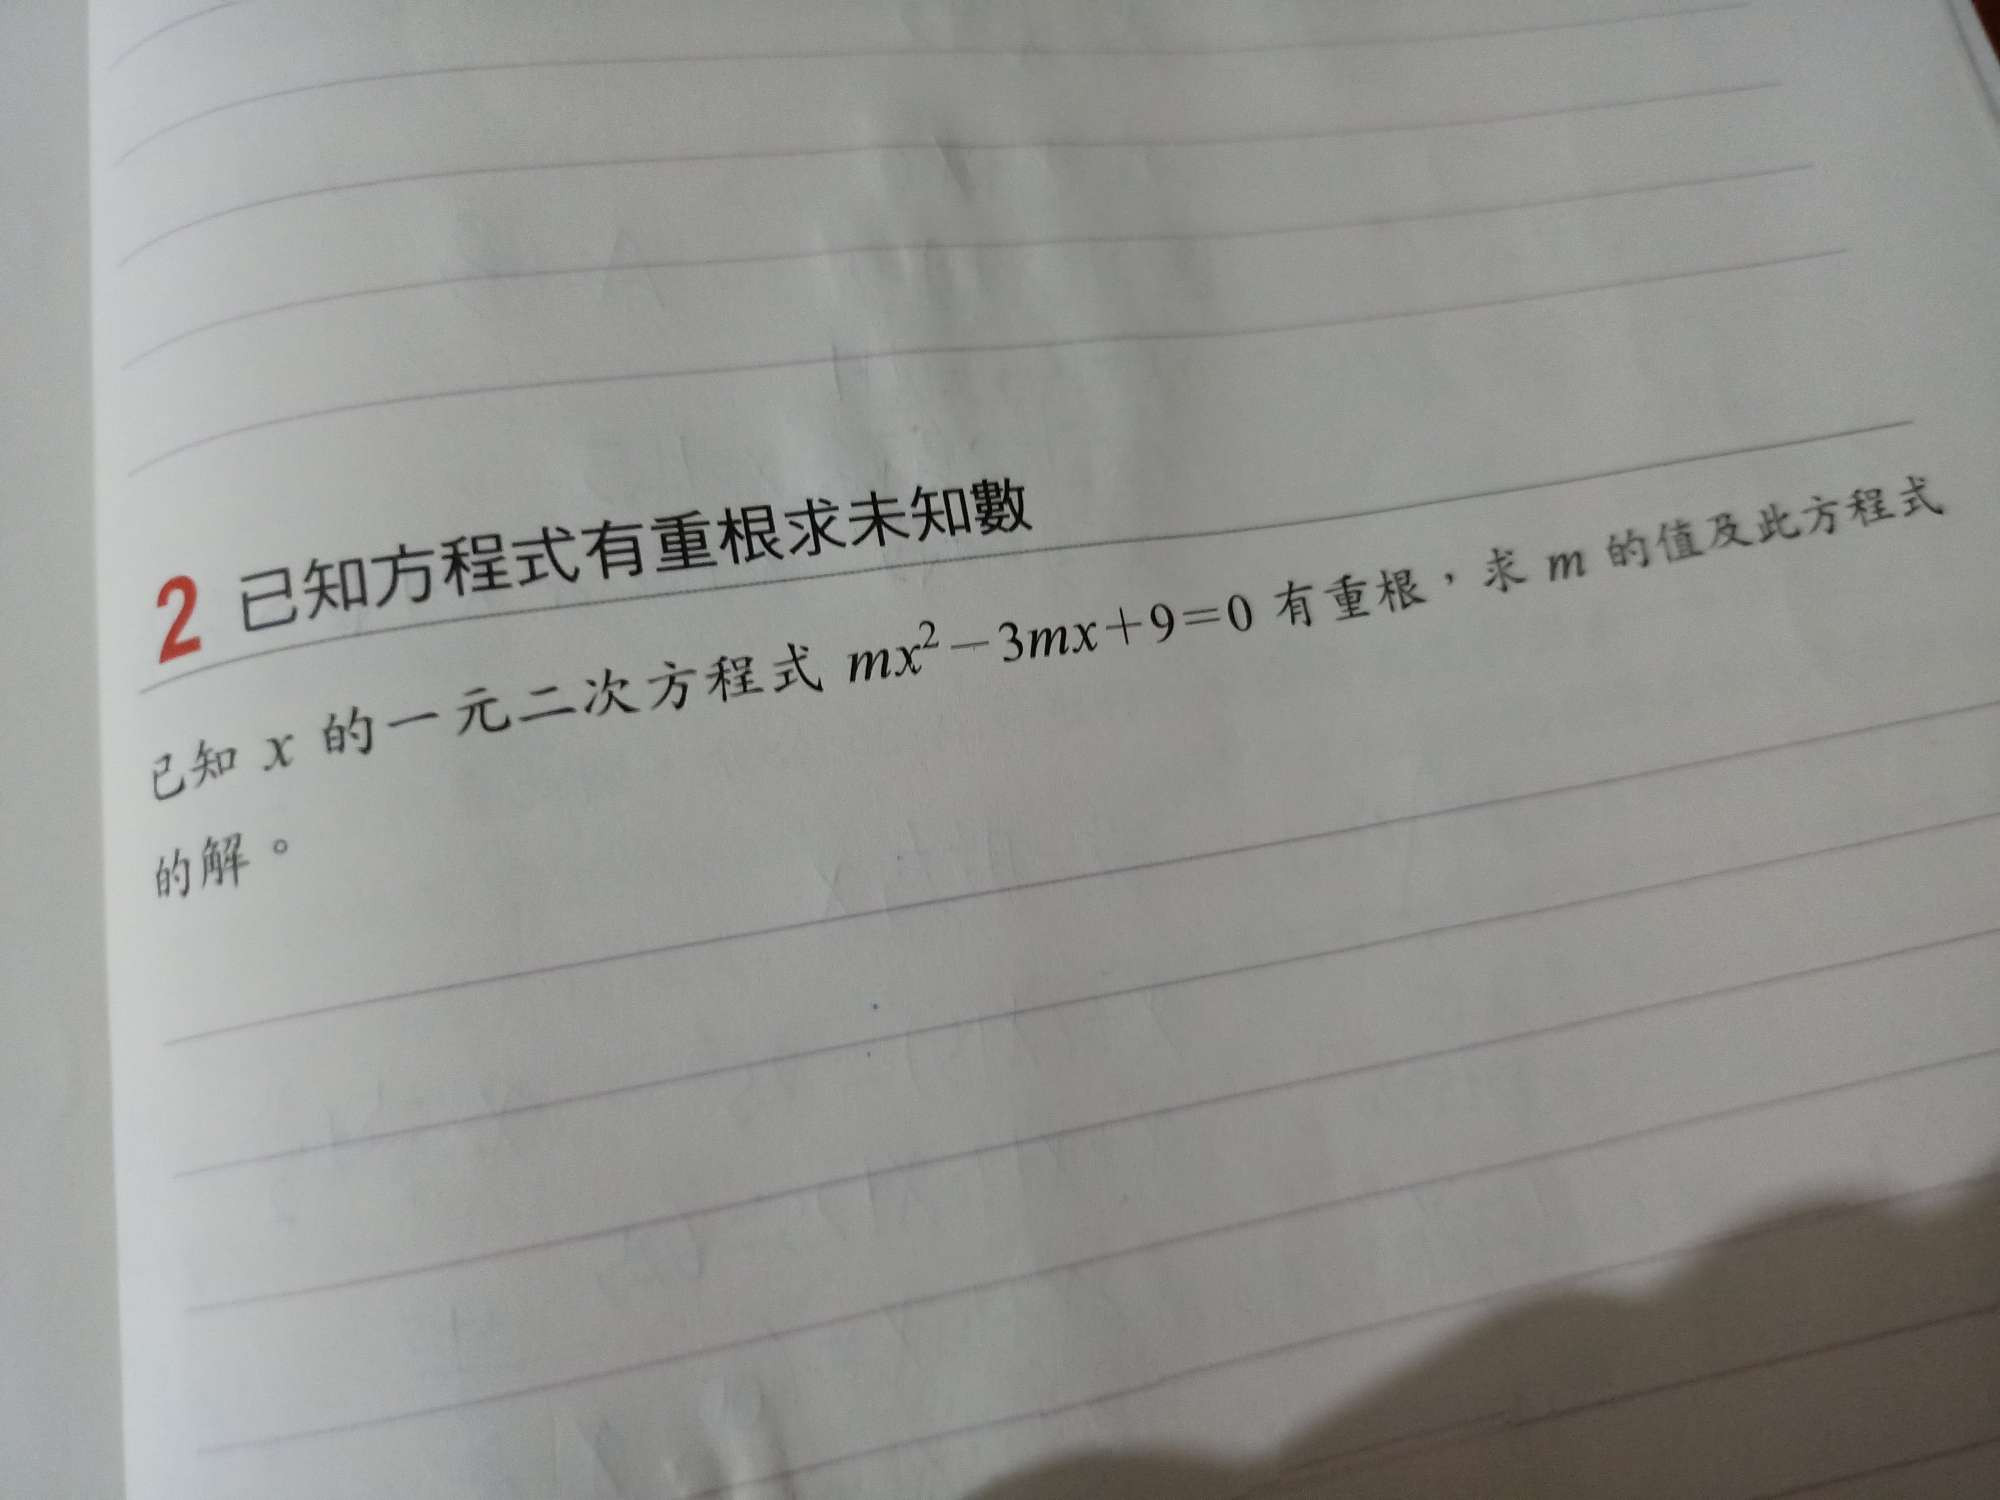 2 已知方程式有重根求未知數
已知 x 的一元二次方程式 mx²－3mx＋9＝0 有重根，求 m 的值及此方程式
的解。